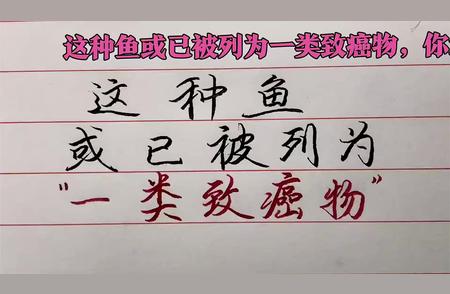 这种鱼或已被列为一类致癌物，你
这种鱼
或已被列为
"一类致癌物"